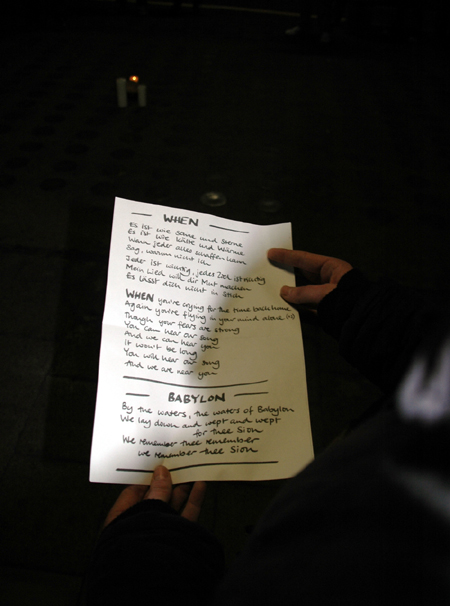 WHEN
Es ist wie Sonne und Sterne
Es ist wie Kälte und Wärme
Wenn jeder alles schaffen kann
Sag, warum nicht ich
Jeder ist wichtig, jedes Ziel ist richtig
Mein Lied wird dir Mut machen
Es lässt dich nicht in Stich
WHEN you're crying for the time back home
Again you're flying in your mind alone
Though your fears are strong
You can hear our song
And we can hear you
It won't be long
You will hear our song
And we are near you
BABYLON
By the waters, the waters of Babylon
We lay down and wept and wept
for thee Sion
We remember thee remember
we remember thee Sion